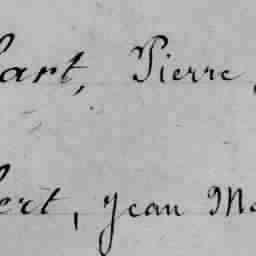 art, Pierre,
ert, Jean Ma